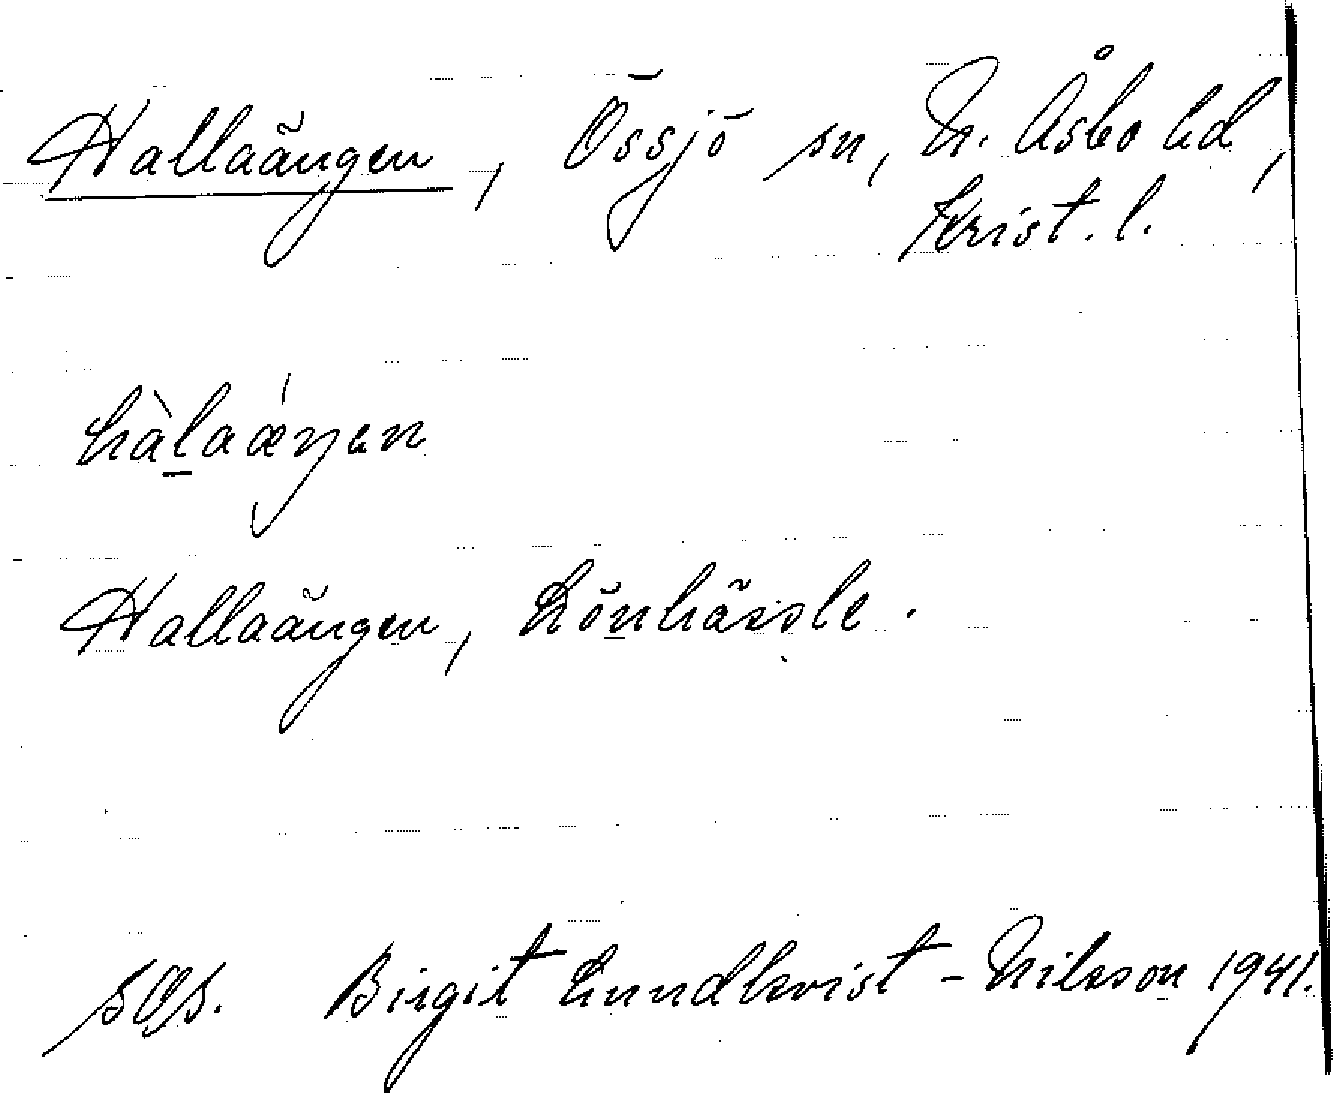 Hallaängen, Össjö sn, N. Åsbo hd,
Krist. l.
hàlaǽŋen
Hallaängen, Lönhässle.
SOS. Birgit Lundkvist-Nilsson 1941.